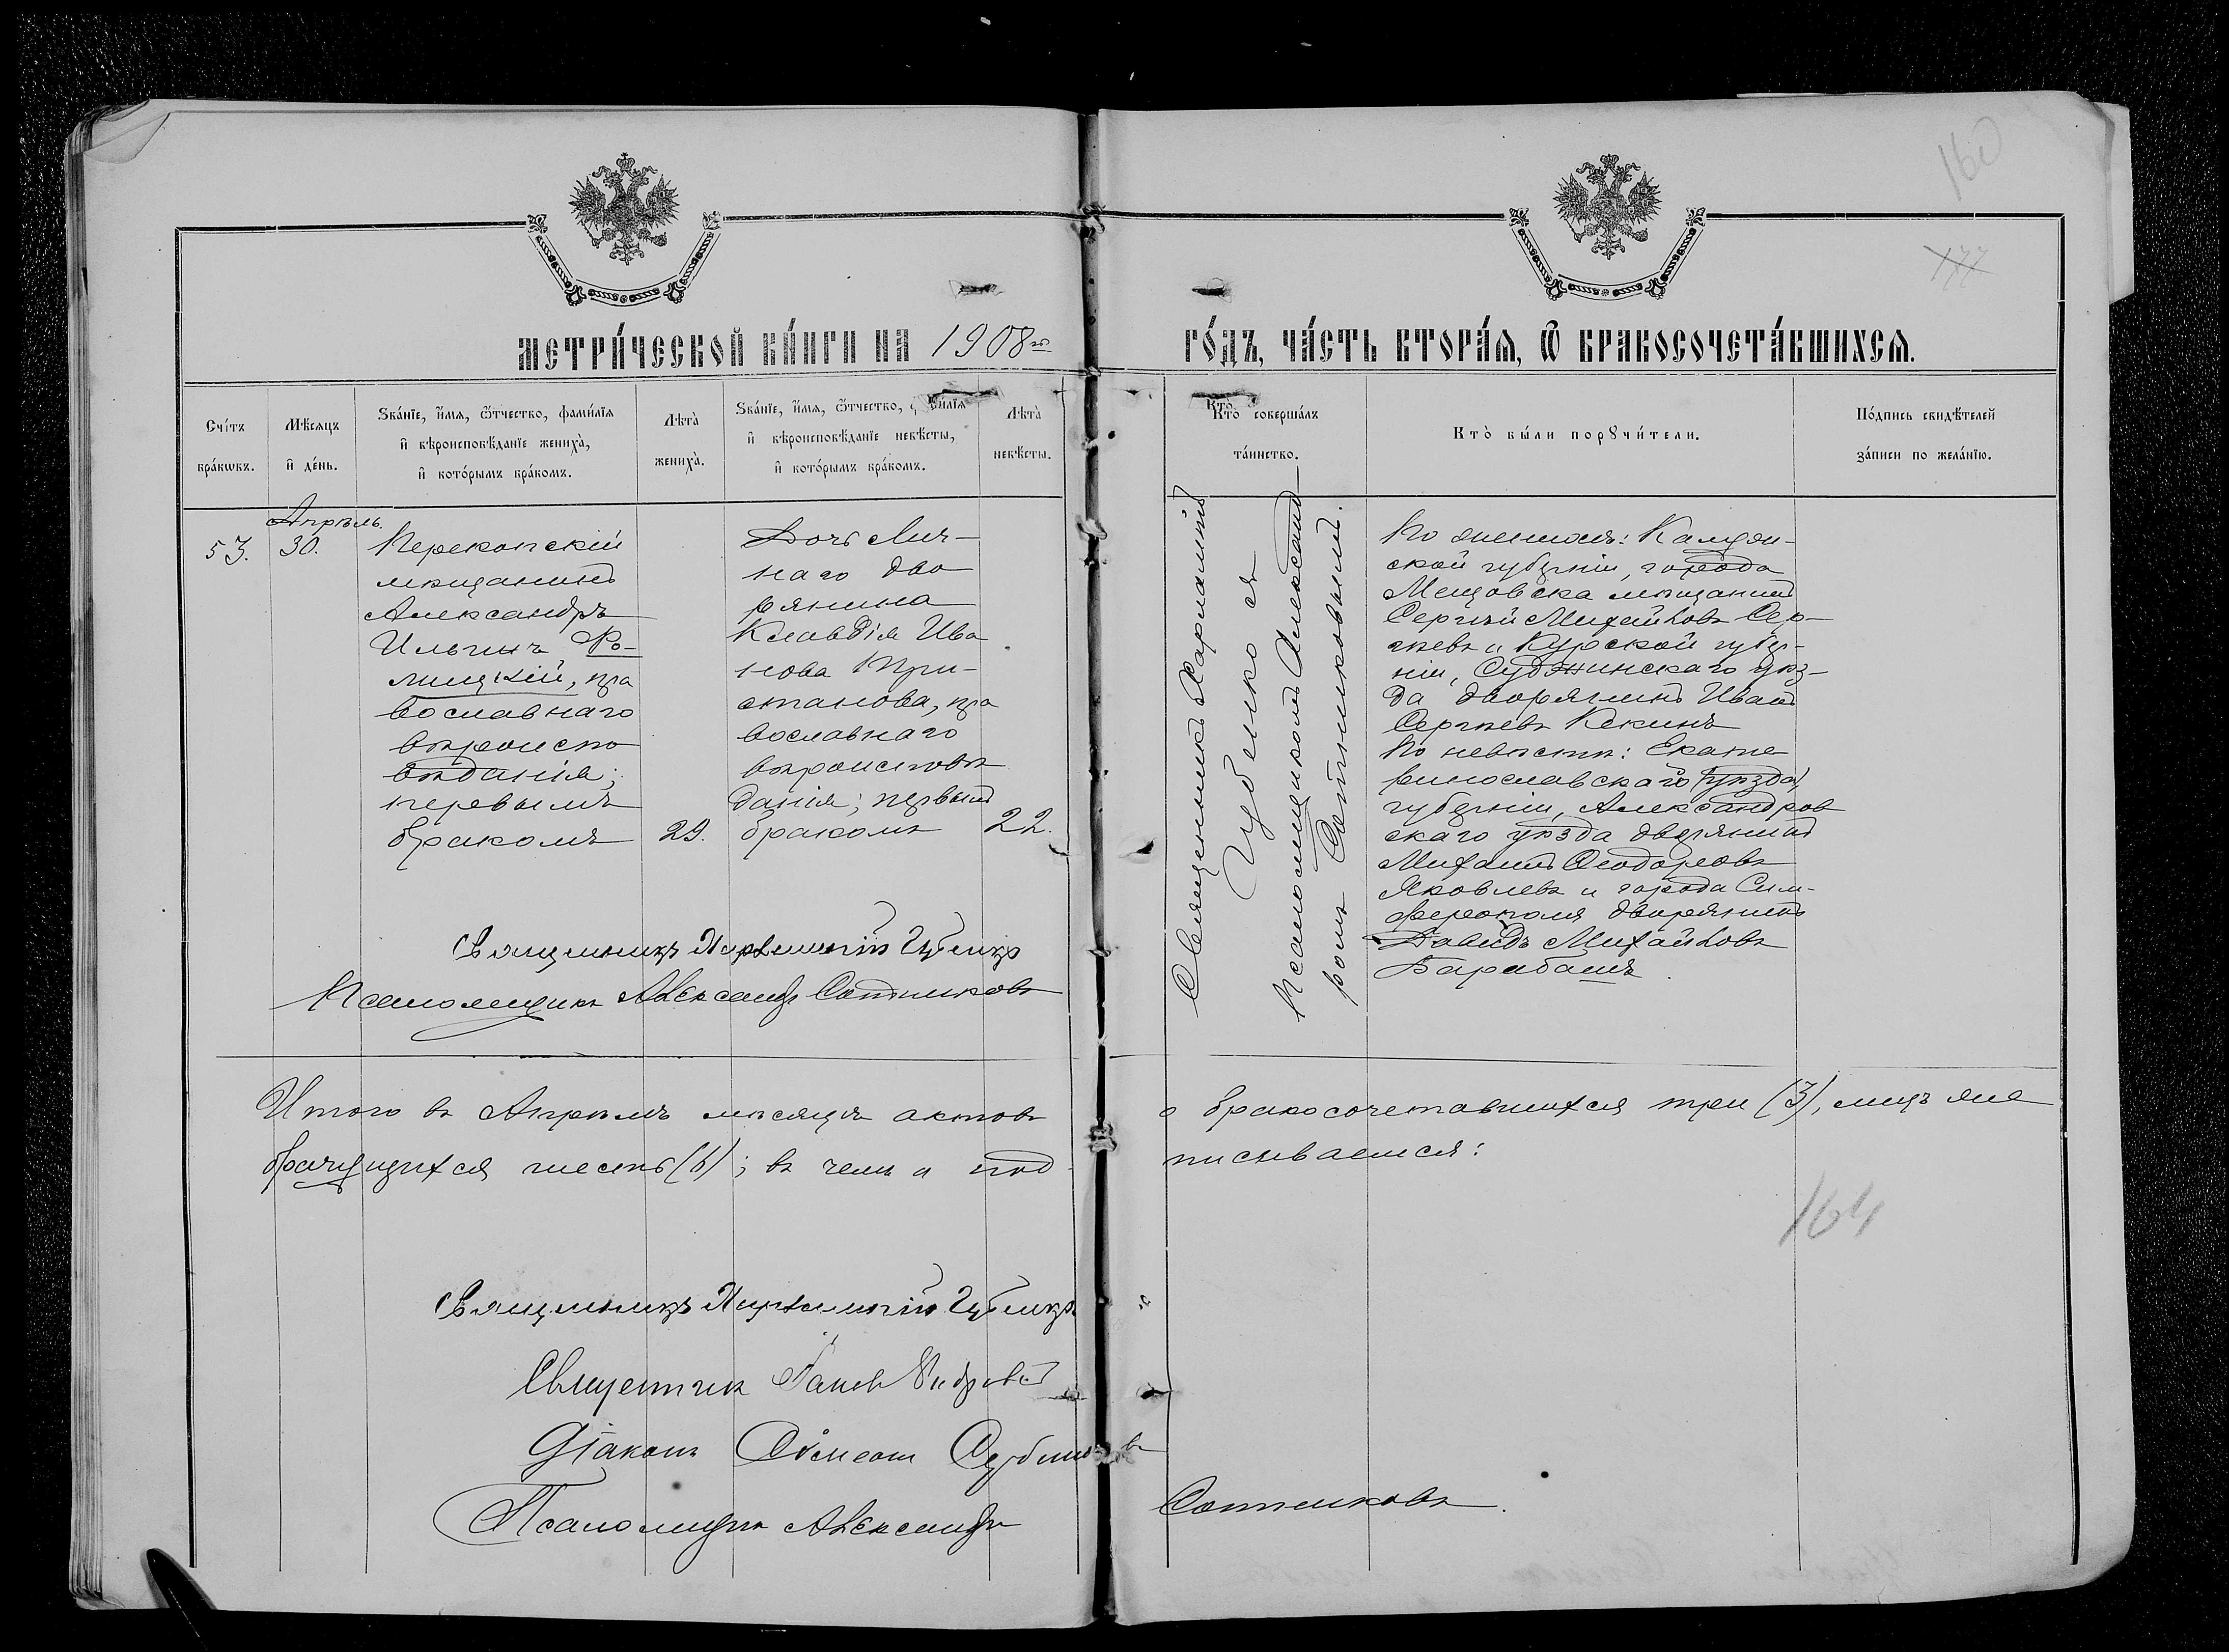 160
177
МЕТРИ́ЧЕСКОЙ КНИ́ГИ НА 1908й ГО́ДЪ, ЧА́СТЬ ВТОРА́Я, Ѿ БРАКОСОЧЕТА́ВШИХСЯ.
Сче́тъ бра́кѡвъ.
Мѣ́сяцъ и҆ де́нь.
Ѕва́нїе, и҆́мя, ѻ҆́тчество, фамѝлїя и҆ вѣроисповѣ́данїе жениха̀, и҆ кото́рымъ бра́комъ.
Лѣта̀ жениха̀.
Ѕва́нїе, и҆́мя, ѻ҆́тчество, фамѝлїя и҆ вѣроисповѣ́данїе невѣ́сты, и҆ кото́рымъ бра́комъ.
Лѣта̀ невѣ́сты.
Кто̀ соверша́лъ та́инство.
Кто̀ бы́ли порꙋчи́тели.
По́дпись свидѣ́телей за́писи по жела́нїю.
53.
Апрѣль.
30.
Перекопскій
мѣщанинъ
Александръ
Ильинъ Ро-
лицкій, пра
вославнаго
вѣроиспо
вѣданія;
первымъ
бракомъ
29.
Дочь лич-
наго дво
рянина
Клавдія Ива
нова При-
станова, пра
вославнаго
вѣроисповѣ
данія; первымъ
бракомъ
22.
Священникъ Харлампій
Губенко съ
псаломщикомъ Александ-
ромъ Сотниковымъ.
По женихѣ: Калуж-
ской губерніи, города
Мещовска мѣщанинъ
Сергѣй Михайловъ Сер-
гѣевъ и Курской губер-
ніи, Суджинскаго уѣз-
да дворянинъ Иванъ
Сергѣевъ Кекинъ
По невѣстѣ: Екате
ринославскаго (уѣзда)
губерніи, Александров
скаго уѣзда дворянинъ
Михаилъ Ѳеодоровъ
Яковлевъ и города Сим-
ферополя дворянинъ
Давидъ Михайловъ
Барабашъ.
Священникъ Харлампій Губенко
Псаломщикъ Александръ Сотниковъ
Итого въ Апрѣлѣ мѣсяцѣ актовъ о бракосочетавшихся три (3), лицъ же
брачущихся шесть (6); въ чемъ и под- писываемся:
164
Священникъ Харлампій Губенко
Священникъ
Діаконъ Сѵмеонъ
Псаломщикъ Александръ Сотниковъ.